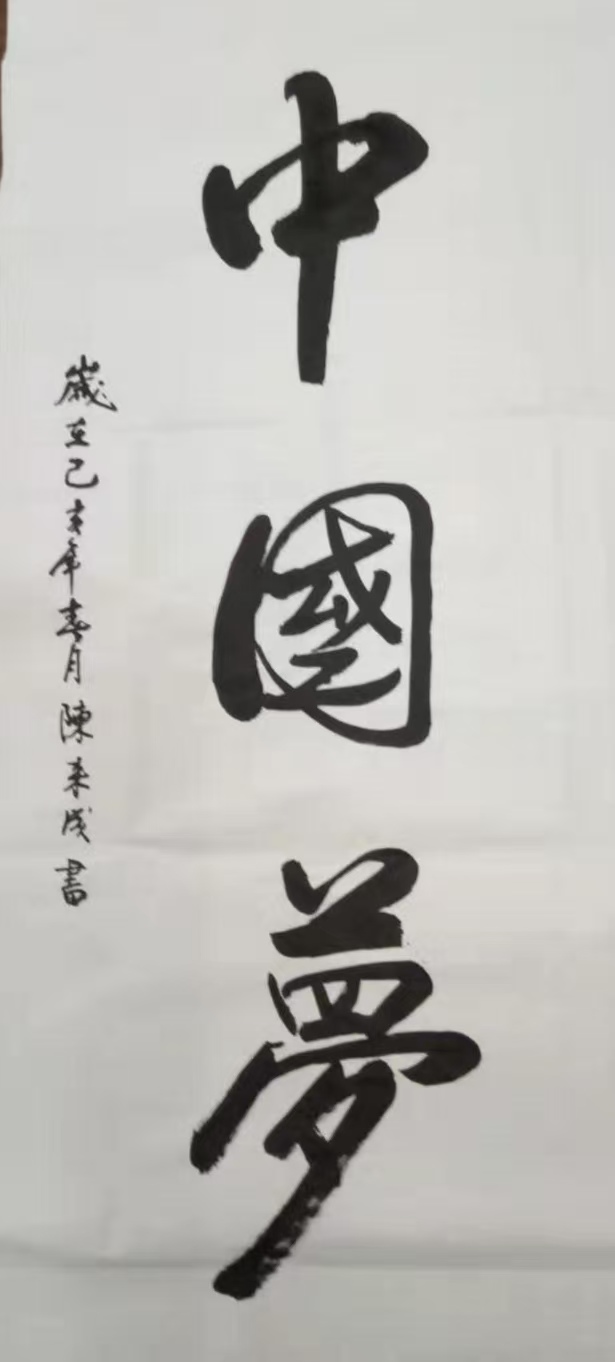 中國夢
歲在己亥年春月陳來成書